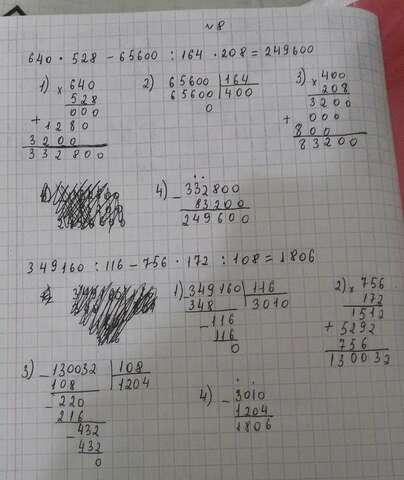 №8
640 · 528 − 65600 : 164 · 208 = 249600
1) × 640
528
000
+ 1280
3200
332800
2) 65600 | 164
65600 | 400
0
3) × 400
208
3200
+ 000
800
83200
4) − 332800
83200
249600
349160 : 116 − 756 · 172 : 108 = 1806
1) − 349160 | 116
348 | 3010
− 116
116
0
2) × 756
172
1512
+ 5292
756
130032
3) − 130032 | 108
108 | 1204
− 220
216
− 432
432
0
4) − 3010
1204
1806